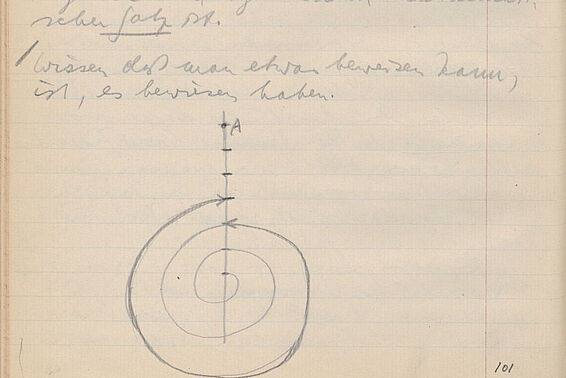 scher Satz ist.
Wissen daß man etwas beweisen kann,
ist, es bewiesen haben.
A
101